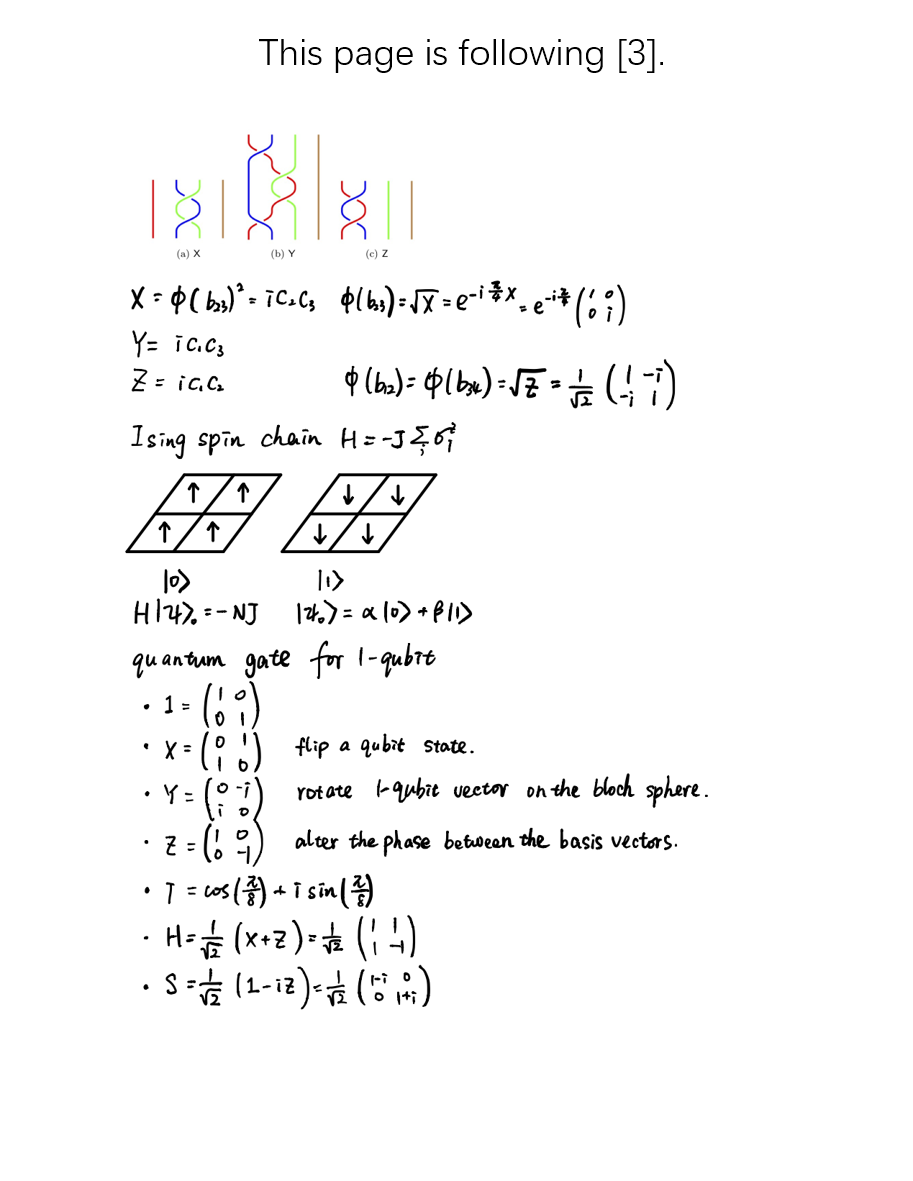 This page is following [3].
(a) X (b) Y (c) Z
X = ϕ(b₂₃)² = ic₂c₃ ϕ(b₂₃) = √X = e^{-i π/4 X} = e^{-i π/4} (1 0; 0 i)
Y = ic₁c₃
Z = ic₁c₂ ϕ(b₁₂) = ϕ(b₃₄) = √Z = 1/√2 (1 -i; -i 1)
Ising spin chain H = -J Σᵢ σᵢᶻ
↑ ↑ ↓ ↓
↑ ↑ ↓ ↓
|0⟩ |1⟩
H|ψ⟩₀ = -NJ |ψ₀⟩ = α|0⟩ + β|1⟩
quantum gate for 1-qubit
• 1 = (1 0; 0 1)
• X = (0 1; 1 0) flip a qubit state.
• Y = (0 -i; i 0) rotate 1-qubit vector on the bloch sphere.
• Z = (1 0; 0 -1) alter the phase between the basis vectors.
• T = cos(π/8) + i sin(π/8)
• H = 1/√2 (X+Z) = 1/√2 (1 1; 1 -1)
• S = 1/√2 (1-iZ) = 1/√2 (1-i 0; 0 1+i)